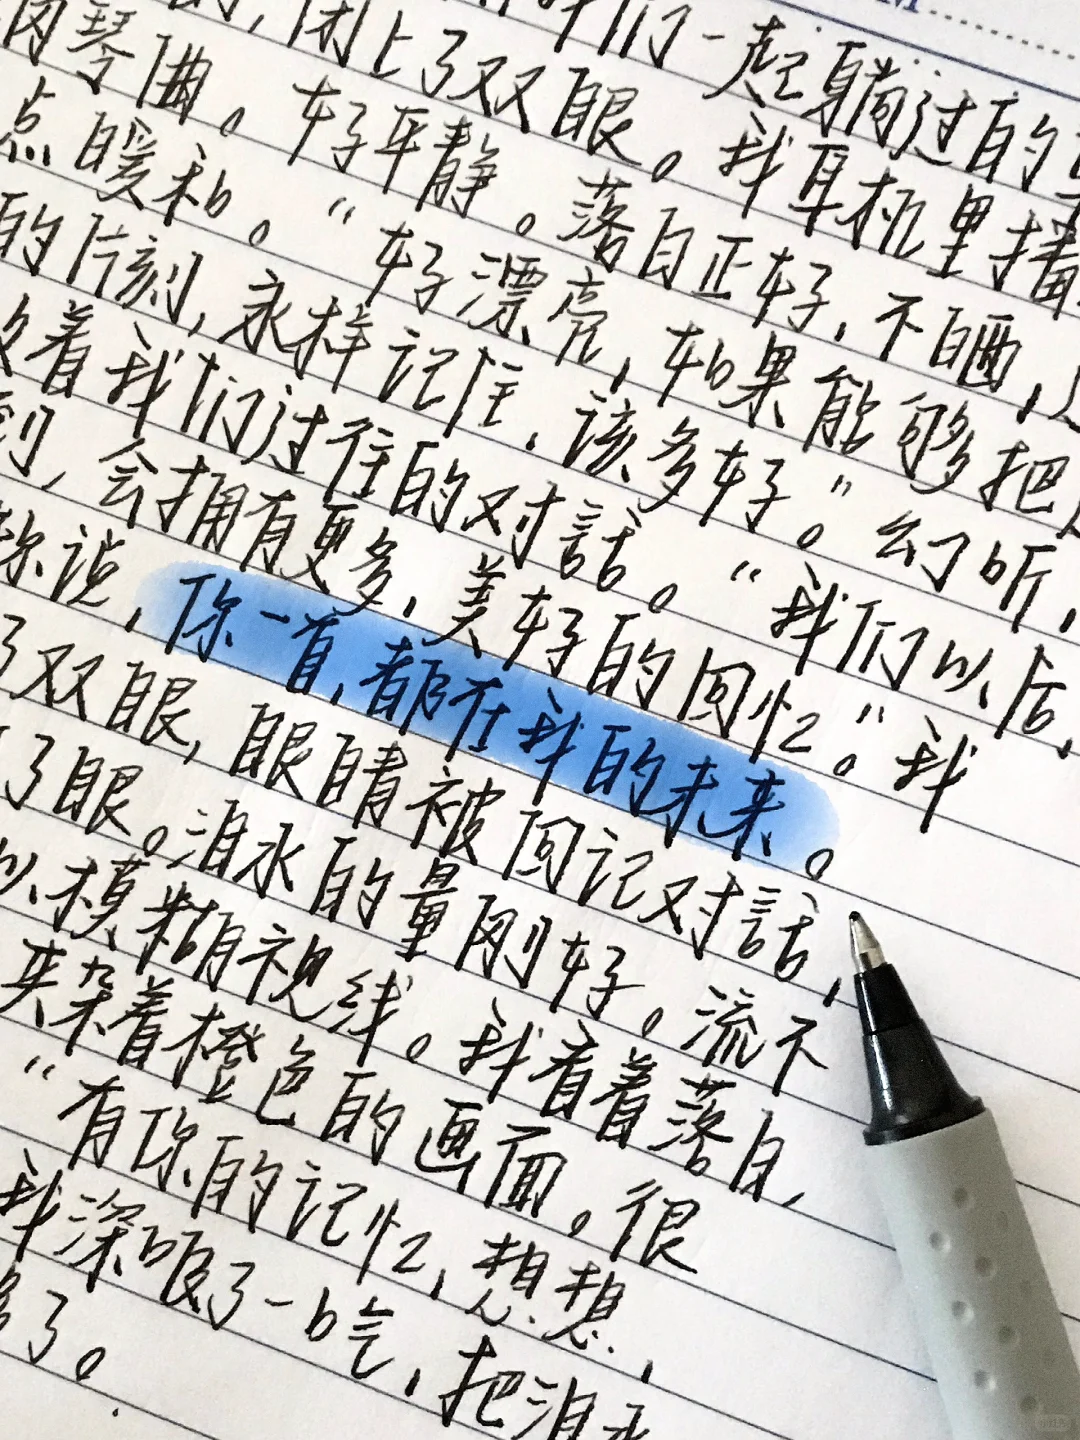 们一起躺过的
,闭上了双眼。我耳机里播
钢琴曲。好平静。落日正好,不晒,
点暖和。“好漂亮,如果能够把
的片刻,永样记住,该多好。”幻听,
放着我们过往的对話。“我们以后,
到,会拥有更多,美好的回忆。”我
你说,你一直,都在我的未来。
了双眼,眼睛被回记对話,
了眼。泪水的量刚好。流不
以模糊视线。我看着落日,
夹杂着橙色的画面。很
“有你的记忆,想想,
我深吸了一口气,把泪水
够了。